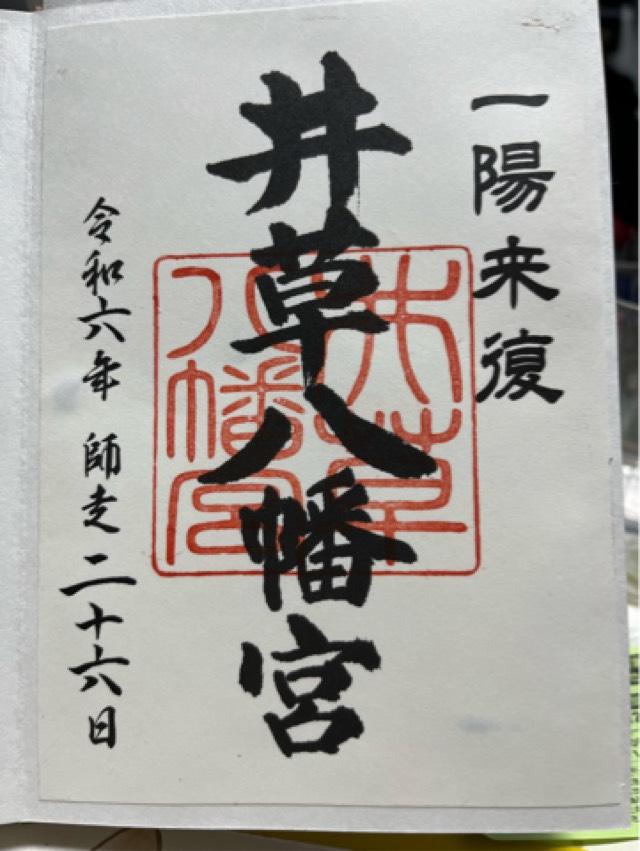 一陽来復
井草八幡宮
井草
八幡宮
令和六年 師走二十六日